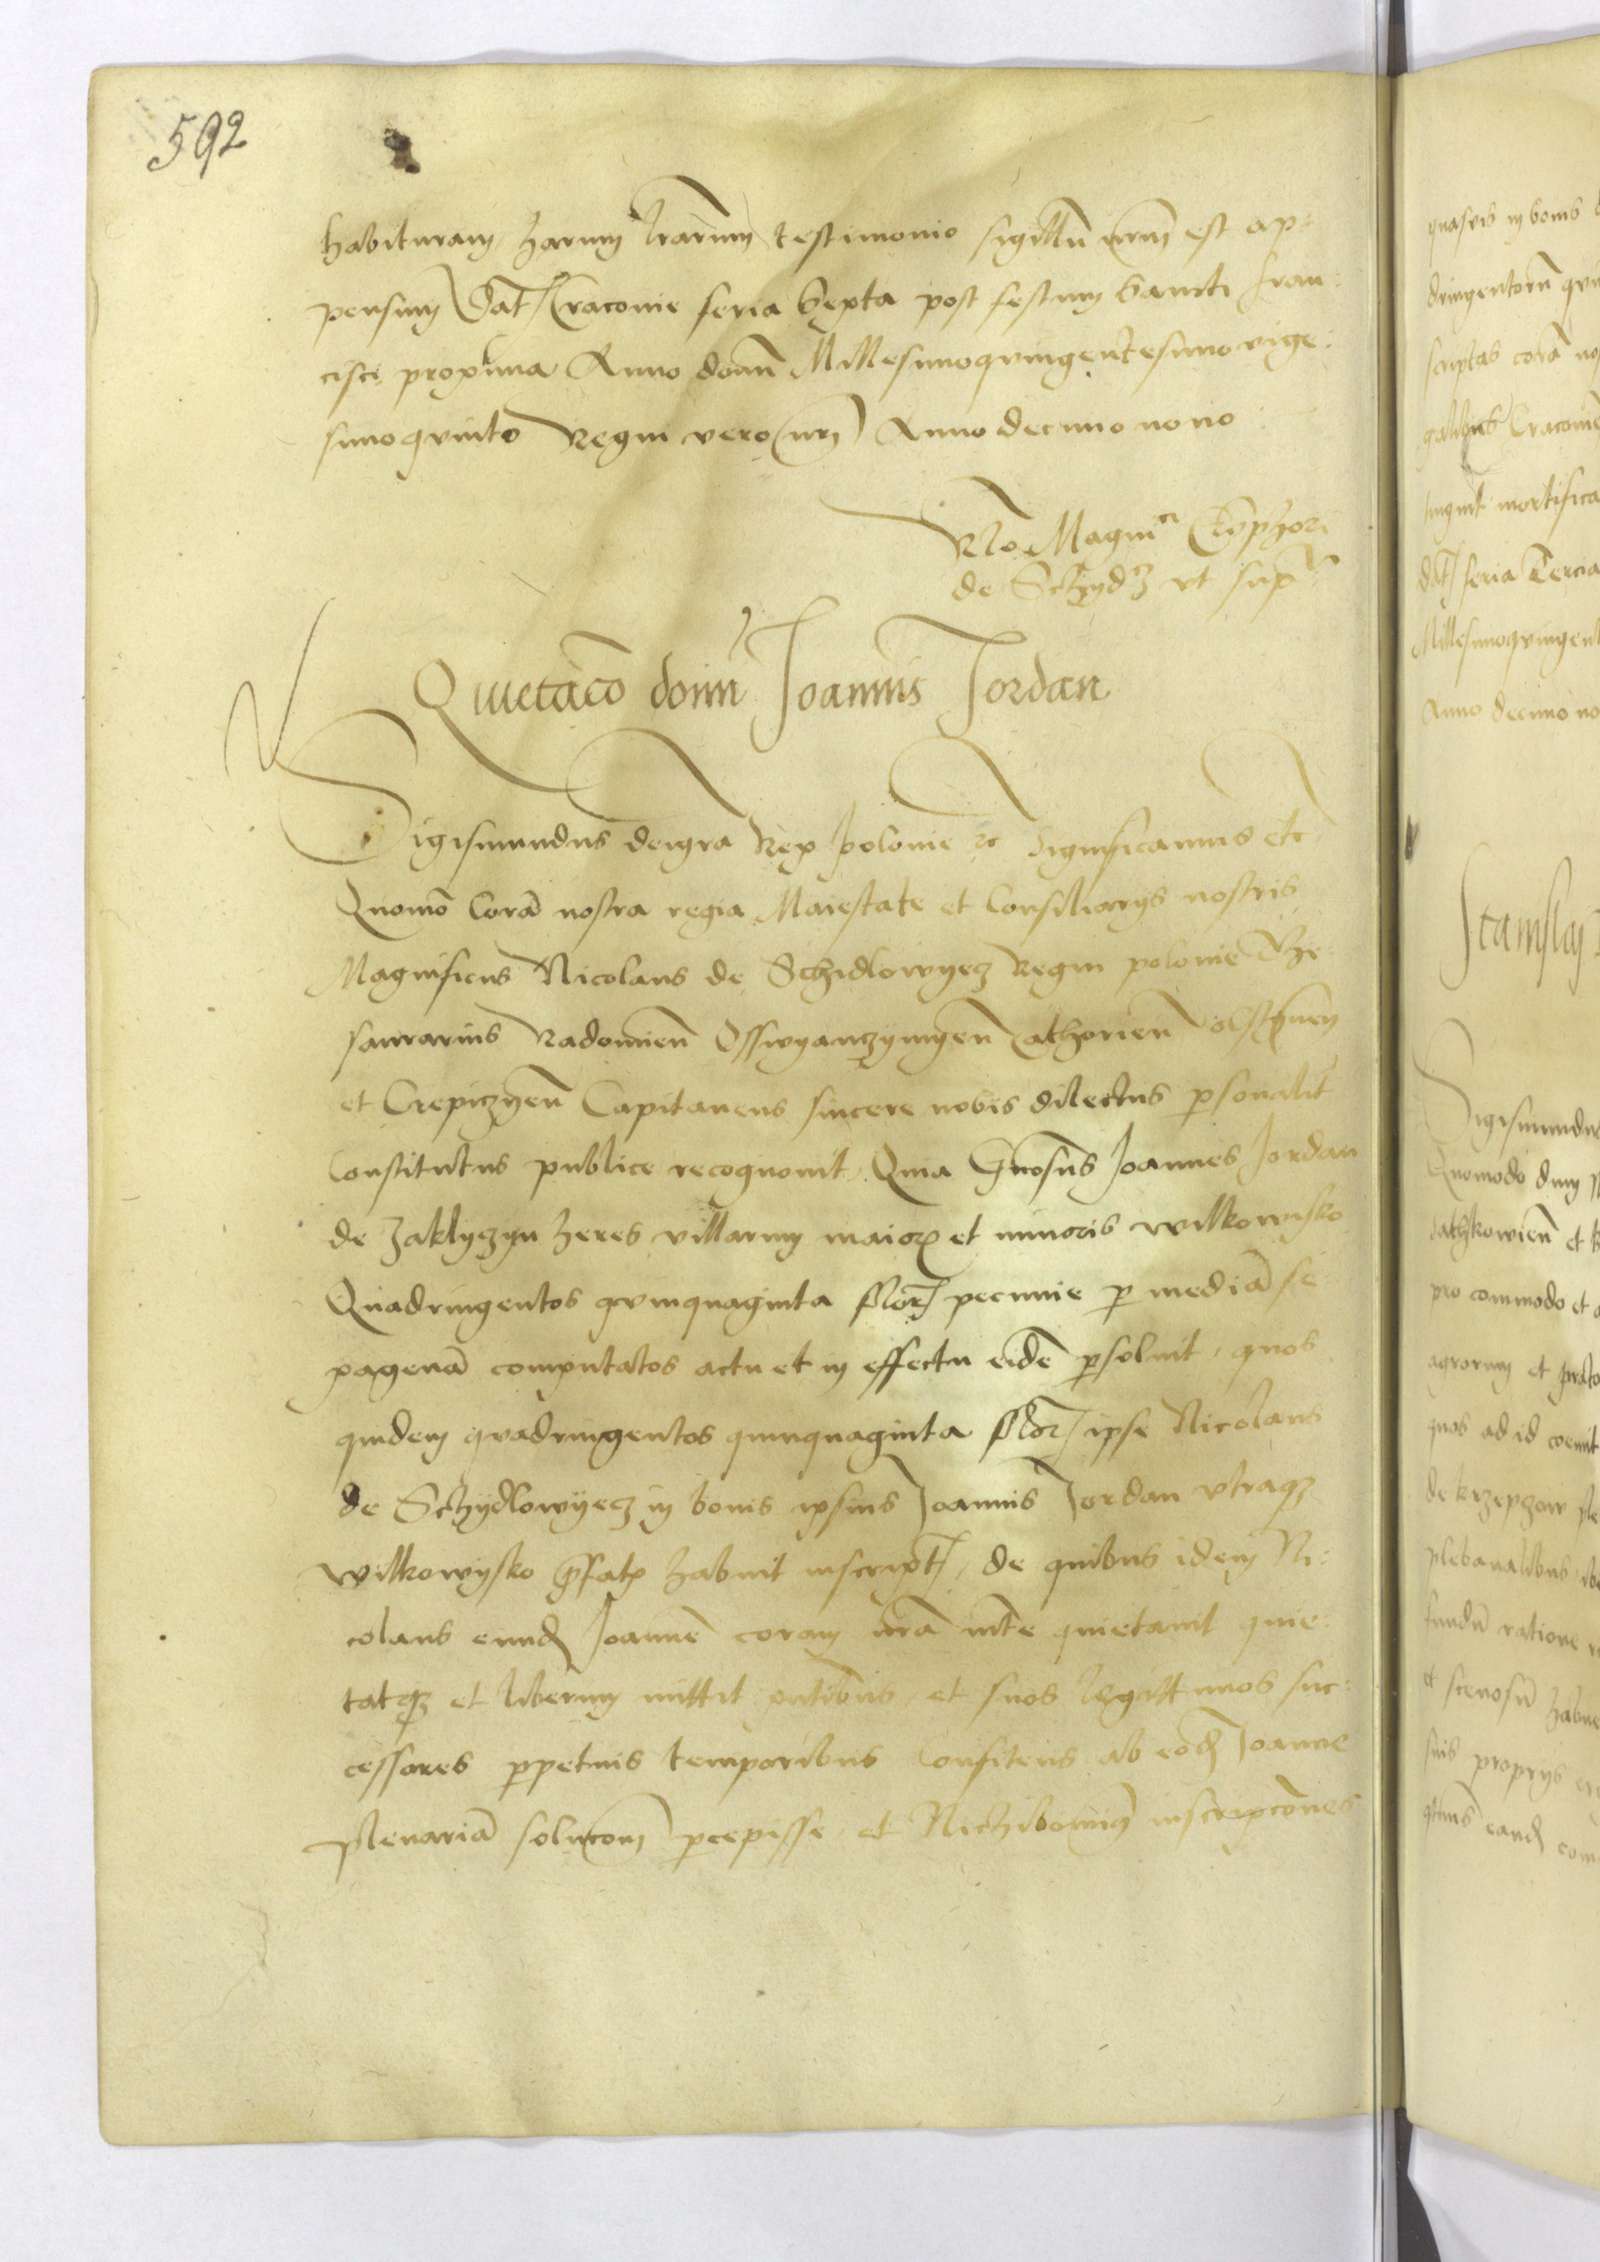 592
habituram harum lrarum testimonio sigillu nrm est ap:
pensum Dat Cracovie feria Sexta post festum Sancti Fran:
cisci proxima Anno domi Millesimoquingentesimo vige:
simoquinto Regni vero nri Anno decimo nono
Rlo Magnci Cristophori
de Schydlz ut supra
Quietaco domi Joannis Jordan
Sigismundus dei gra Rex Polonie etc Significamus etc
Quomo Cora nostra regia Maiestate et Consiliarijs nostris
Magnificus Nicolaus de Schidlowyecz Regni polonie The:
saurarius Radomien Osswyanczymen olstinen
et Crepiczyen Capitaneus sincere nobis dilectus psonalit
Constitutus publice recognovit Quia Gnosus Joannes Jordan
de Zaklyczyn heres villarum maioris et minoris wilkowysko
Quadringentos quinquaginta flor pecunie p media se
xagena computatos actu et in effectu eide psolvit, quos
quidem quadringentos quinquaginta flor ipse Nicolaus
de Schydlowyecz in bonis ipsius Joannis Jordan utraq
wilkowysko pfatis habuit inscript, de quibus idem Ni:
colaus eund Joanne coram nra mte quietavit quie:
tatq et liberum mittit pntibus et suos legittimos suc:
cessores ppetuis temporibus Confitens ab eod Joanne
plenaria solucom pcepisse et Nichilominus inscripcones
quasvis in bonis
dringentoru qui
scriptas cora nos
Cracovien
mortifica
dat feria Tercia
Millesimoquingent
Anno decimo no
Stanislaj
Sigismundus
Quomodo dum
et
pro commodo et
agrorum et prato
quos ad id
de
plebanalibus
fundu ratione
et
suis proprijs
eand com